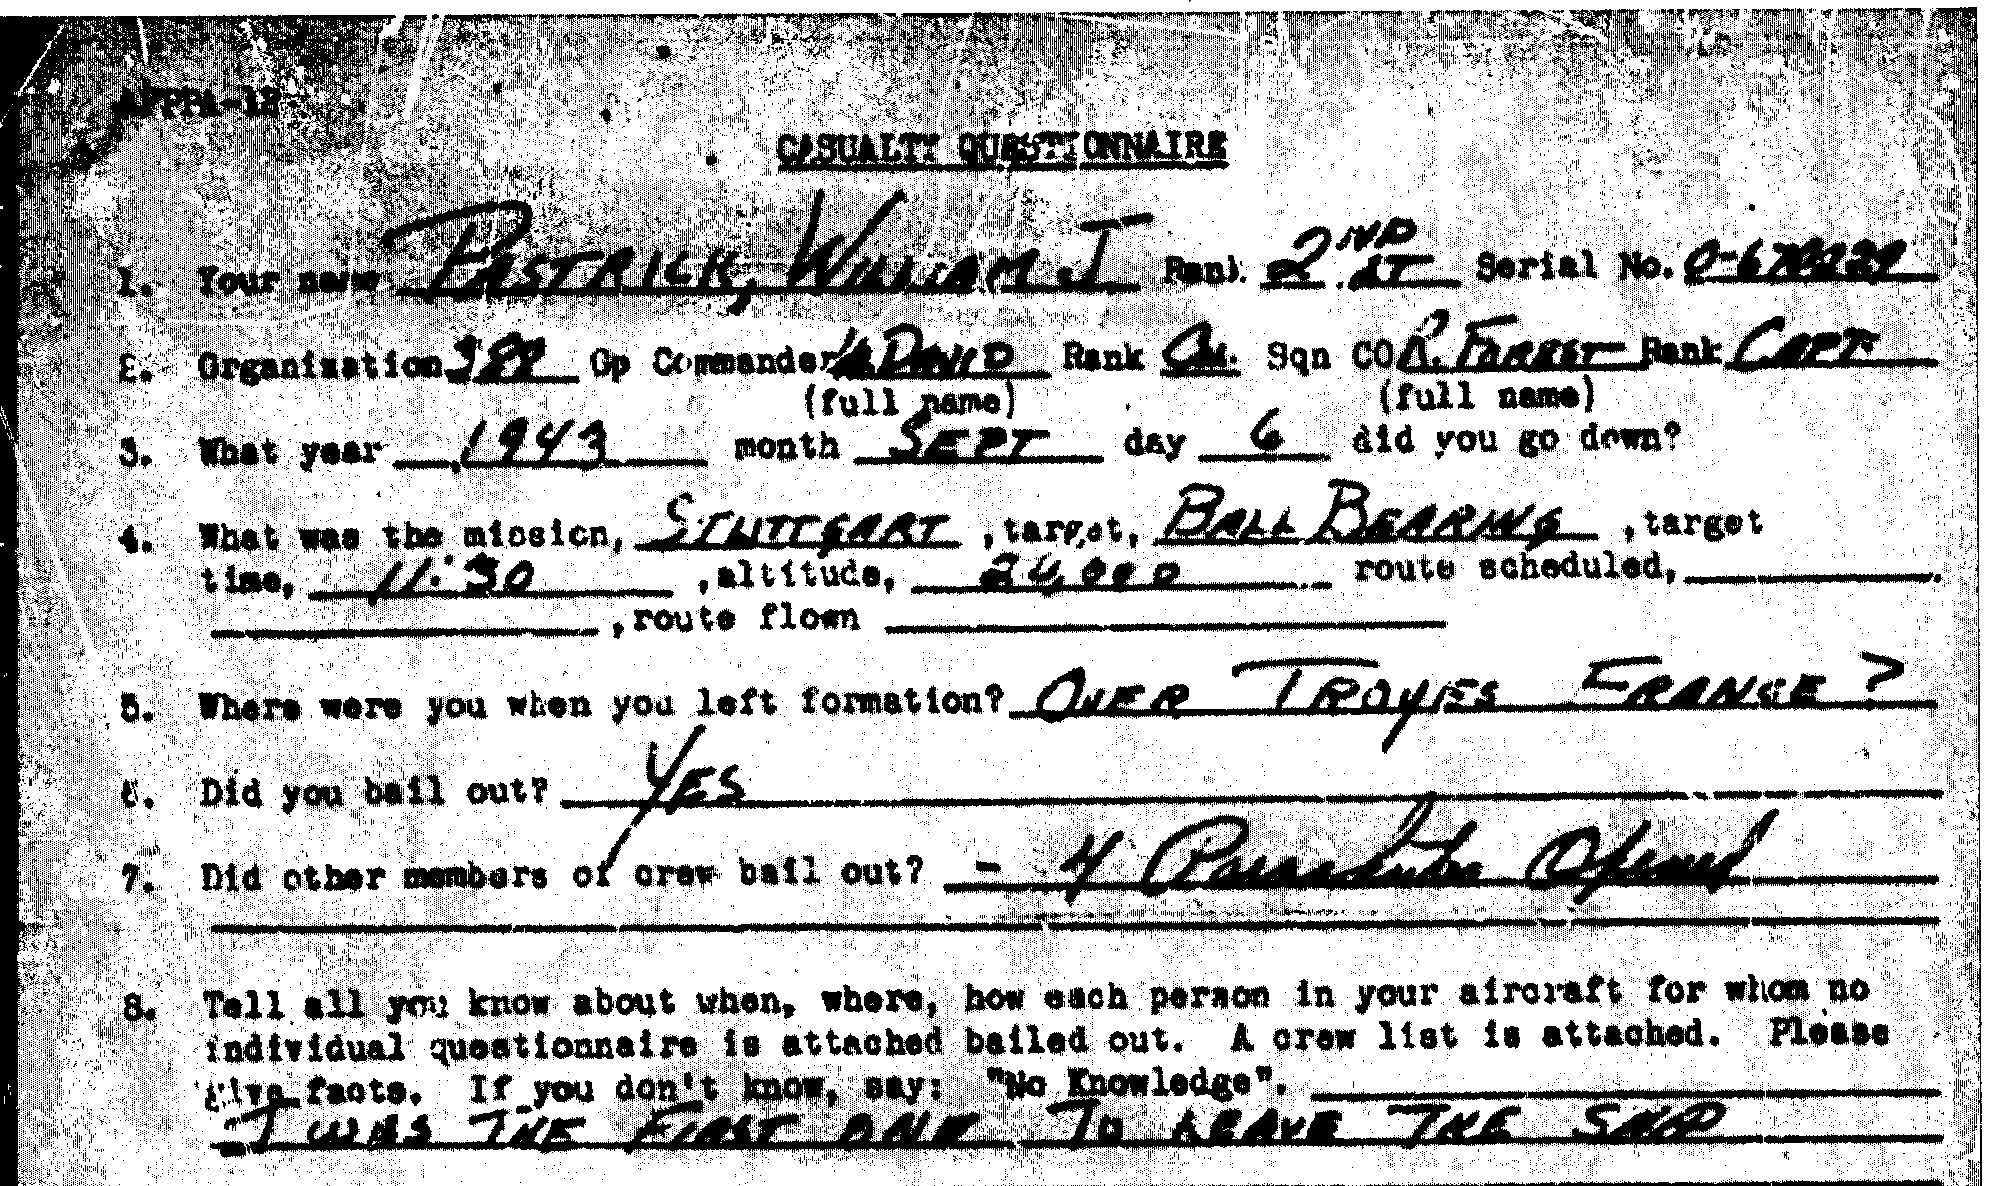 AFPPA-12
CASUALTY QUESTIONNAIRE
1. Your name PASTRICK, WILLIAM J Rank 2ND LT Serial No.
2. Organization 388 Gp Commander DAVID Rank COL. Sqn CO R. FORREST Rank CAPT.
(full name) (full name)
3. What year 1943 month SEPT day 6 did you go down?
4. What was the mission, STUTTGART ,target, BALL BEARING ,target
time, 11:30 ,altitude, 24,000 route scheduled,
,route flown
5. Where were you when you left formation? OVER TROYES FRANCE ?
6. Did you bail out? YES
7. Did other members of crew bail out? - 4 Parachutes Opened
8. Tell all you know about when, where, how each person in your aircraft for whom no
individual questionnaire is attached bailed out. A crew list is attached. Please
give facts. If you don't know, say: "No Knowledge".
- I WAS THE FIRST ONE TO LEAVE THE SHIP